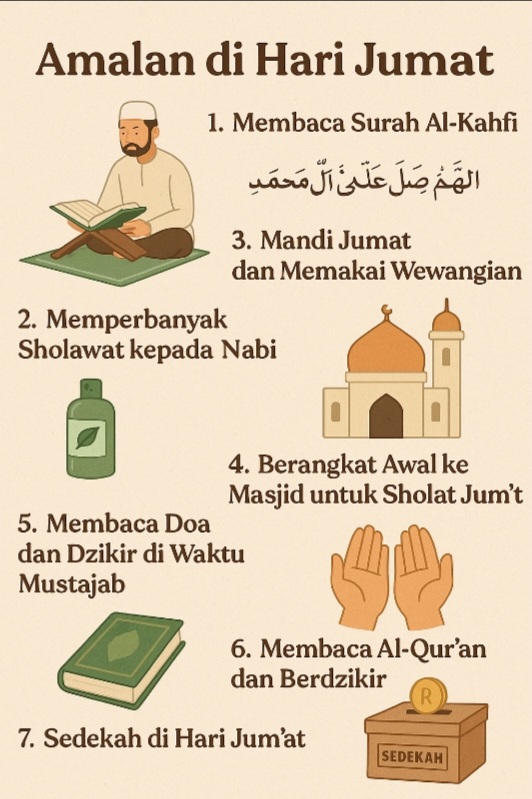 Amalan di Hari Jumat
1. Membaca Surah Al-Kahfi
الهَّمُ صَلَ عَلَىٰ اَلَّ مَحمَدِ
3. Mandi Jumat
dan Memakai Wewangian
2. Memperbanyak
Sholawat kepada Nabi
4. Berangkat Awal ke
Masjid untuk Sholat Jum't
5. Membaca Doa
dan Dzikir di Waktu
Mustajab
6. Membaca Al-Qur'an
dan Berdzikir
R
SEDEKAH
7. Sedekah di Hari Jum'at